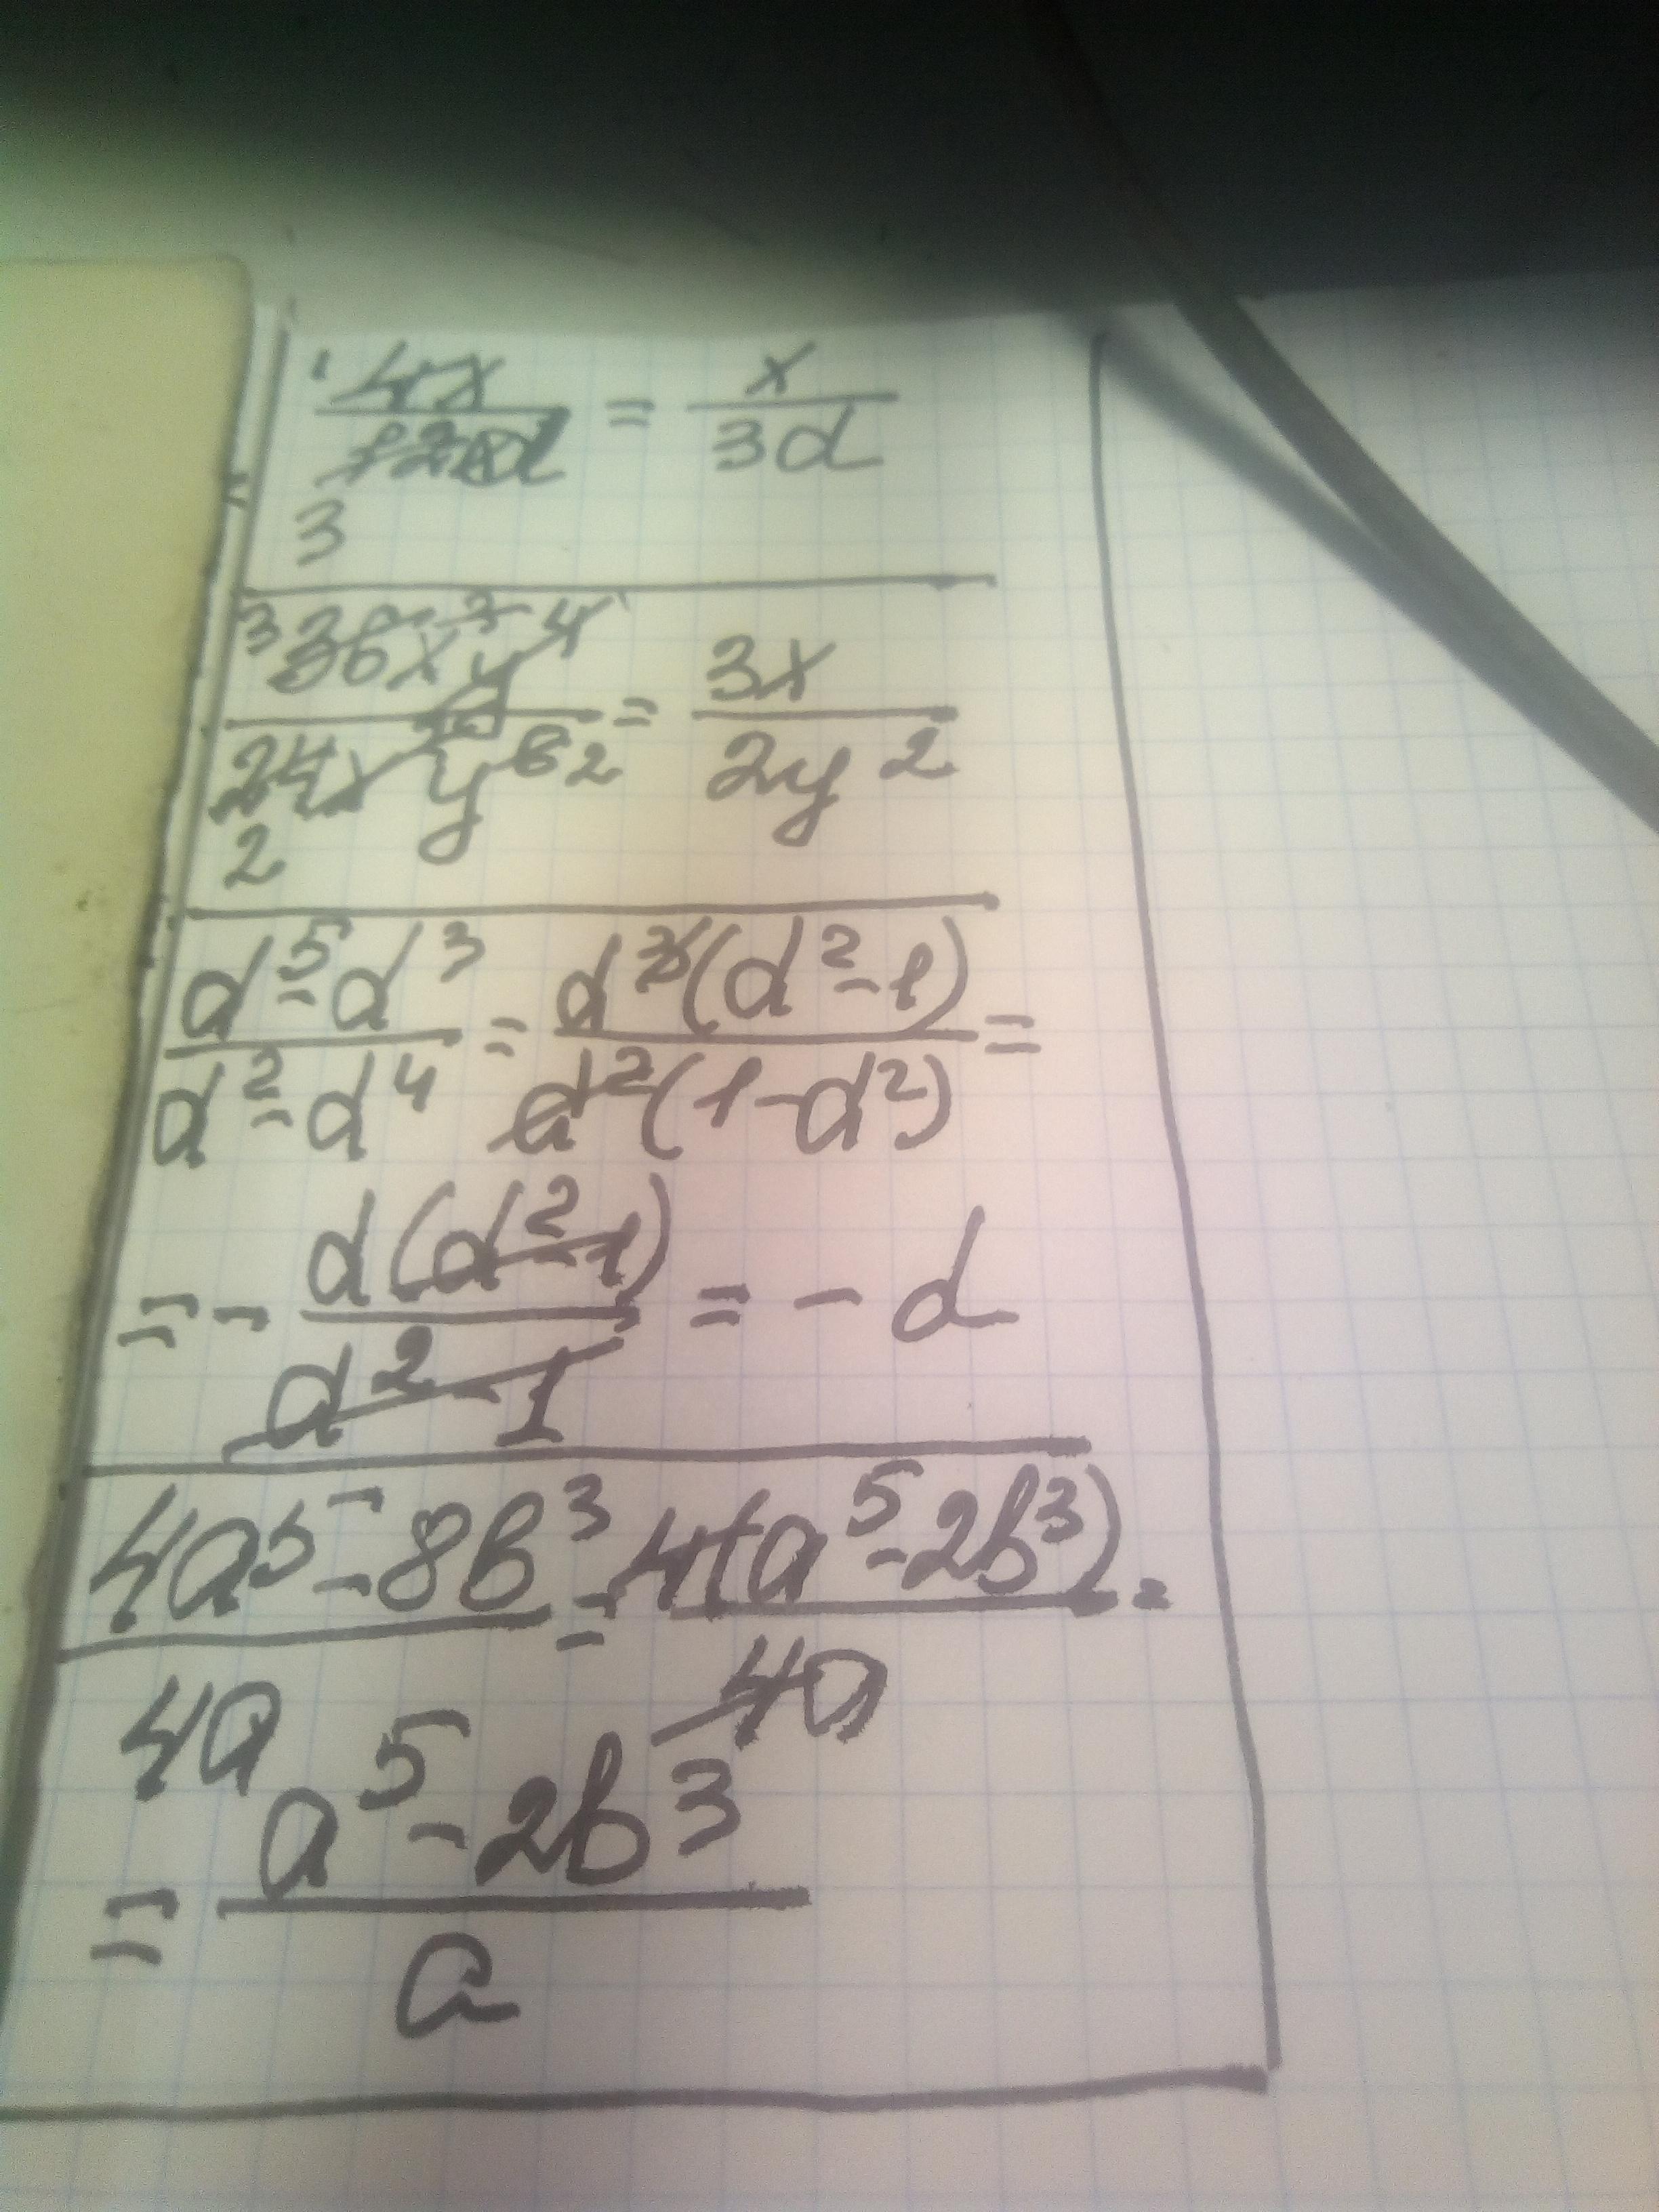 4x/12d = x/3d
3
3 36x²y⁴/24xy⁶ 2 = 3x/2y²
2
d⁵-d³/d²-d⁴ = d³(d²-1)/d²(1-d²) =
= - d(d²-1)/d²-1 = -d
4a⁵-8b³/4a = 4(a⁵-2b³)/4a =
= a⁵-2b³/a